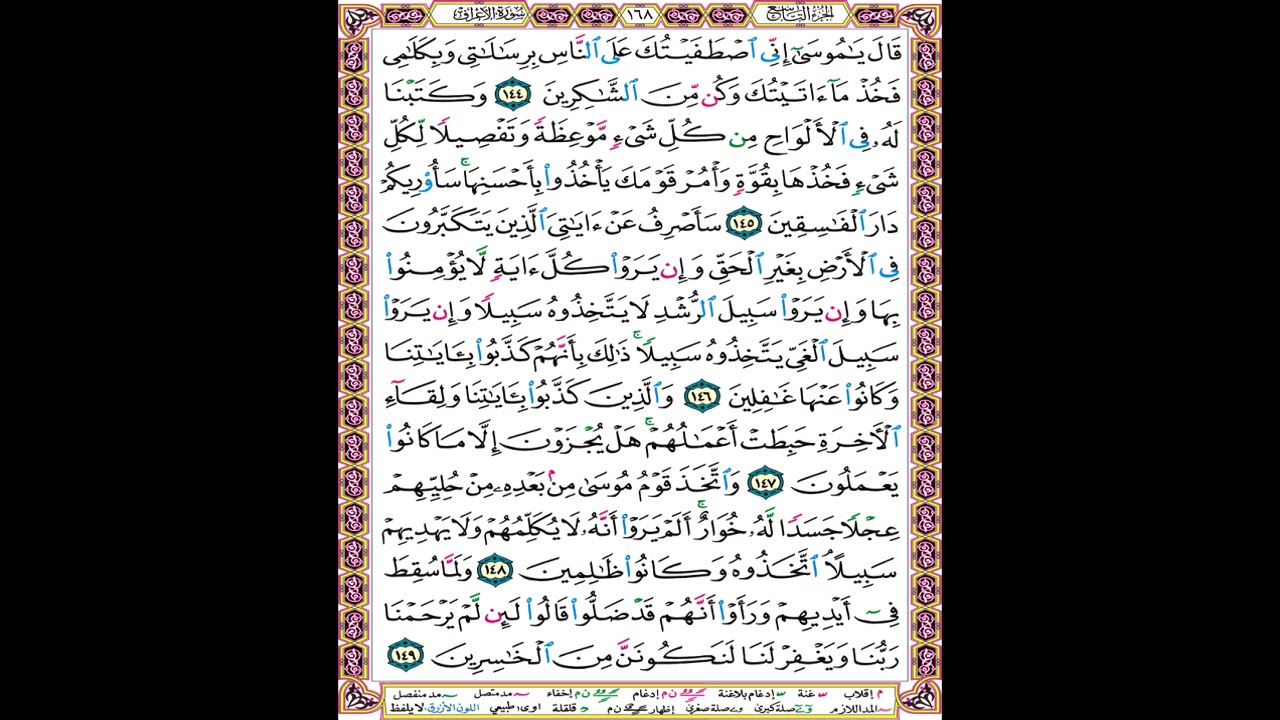 الجزء التاسع
١٦٨
سورة الأعراف
قَالَ يَـٰمُوسَىٰٓ إِنِّى ٱصْطَفَيْتُكَ عَلَى ٱلنَّاسِ بِرِسَـٰلَـٰتِى وَبِكَلَـٰمِى
فَخُذْ مَآ ءَاتَيْتُكَ وَكُن مِّنَ ٱلشَّـٰكِرِينَ ١٤٤ وَكَتَبْنَا
لَهُۥ فِى ٱلْأَلْوَاحِ مِن كُلِّ شَىْءٍ مَّوْعِظَةً وَتَفْصِيلًا لِّكُلِّ
شَىْءٍ فَخُذْهَا بِقُوَّةٍ وَأْمُرْ قَوْمَكَ يَأْخُذُوا۟ بِأَحْسَنِهَا ۚ سَأُو۟رِيكُمْ
دَارَ ٱلْفَـٰسِقِينَ ١٤٥ سَأَصْرِفُ عَنْ ءَايَـٰتِىَ ٱلَّذِينَ يَتَكَبَّرُونَ
فِى ٱلْأَرْضِ بِغَيْرِ ٱلْحَقِّ وَإِن يَرَوْا۟ كُلَّ ءَايَةٍ لَّا يُؤْمِنُوا۟
بِهَا وَإِن يَرَوْا۟ سَبِيلَ ٱلرُّشْدِ لَا يَتَّخِذُوهُ سَبِيلًا وَإِن يَرَوْا۟
سَبِيلَ ٱلْغَىِّ يَتَّخِذُوهُ سَبِيلًا ۚ ذَٰلِكَ بِأَنَّهُمْ كَذَّبُوا۟ بِـَٔايَـٰتِنَا
وَكَانُوا۟ عَنْهَا غَـٰفِلِينَ ١٤٦ وَٱلَّذِينَ كَذَّبُوا۟ بِـَٔايَـٰتِنَا وَلِقَآءِ
ٱلْـَٔاخِرَةِ حَبِطَتْ أَعْمَـٰلُهُمْ ۚ هَلْ يُجْزَوْنَ إِلَّا مَا كَانُوا۟
يَعْمَلُونَ ١٤٧ وَٱتَّخَذَ قَوْمُ مُوسَىٰ مِنۢ بَعْدِهِۦ مِنْ حُلِيِّهِمْ
عِجْلًا جَسَدًا لَّهُۥ خُوَارٌ ۚ أَلَمْ يَرَوْا۟ أَنَّهُۥ لَا يُكَلِّمُهُمْ وَلَا يَهْدِيهِمْ
سَبِيلًا ٱتَّخَذُوهُ وَكَانُوا۟ ظَـٰلِمِينَ ١٤٨ وَلَمَّا سُقِطَ
فِىٓ أَيْدِيهِمْ وَرَأَوْا۟ أَنَّهُمْ قَدْ ضَلُّوا۟ قَالُوا۟ لَئِن لَّمْ يَرْحَمْنَا
رَبُّنَا وَيَغْفِرْ لَنَا لَنَكُونَنَّ مِنَ ٱلْخَـٰسِرِينَ ١٤٩
م إقلاب غنة إدغام بلاغنة ن م إدغام ن م إخفاء مد متصل مد منفصل
المد اللازم صلة كبرى صلة صغرى إظهار ن م قلقلة اوى طبيعي اللون الأزرق لا يلفظ